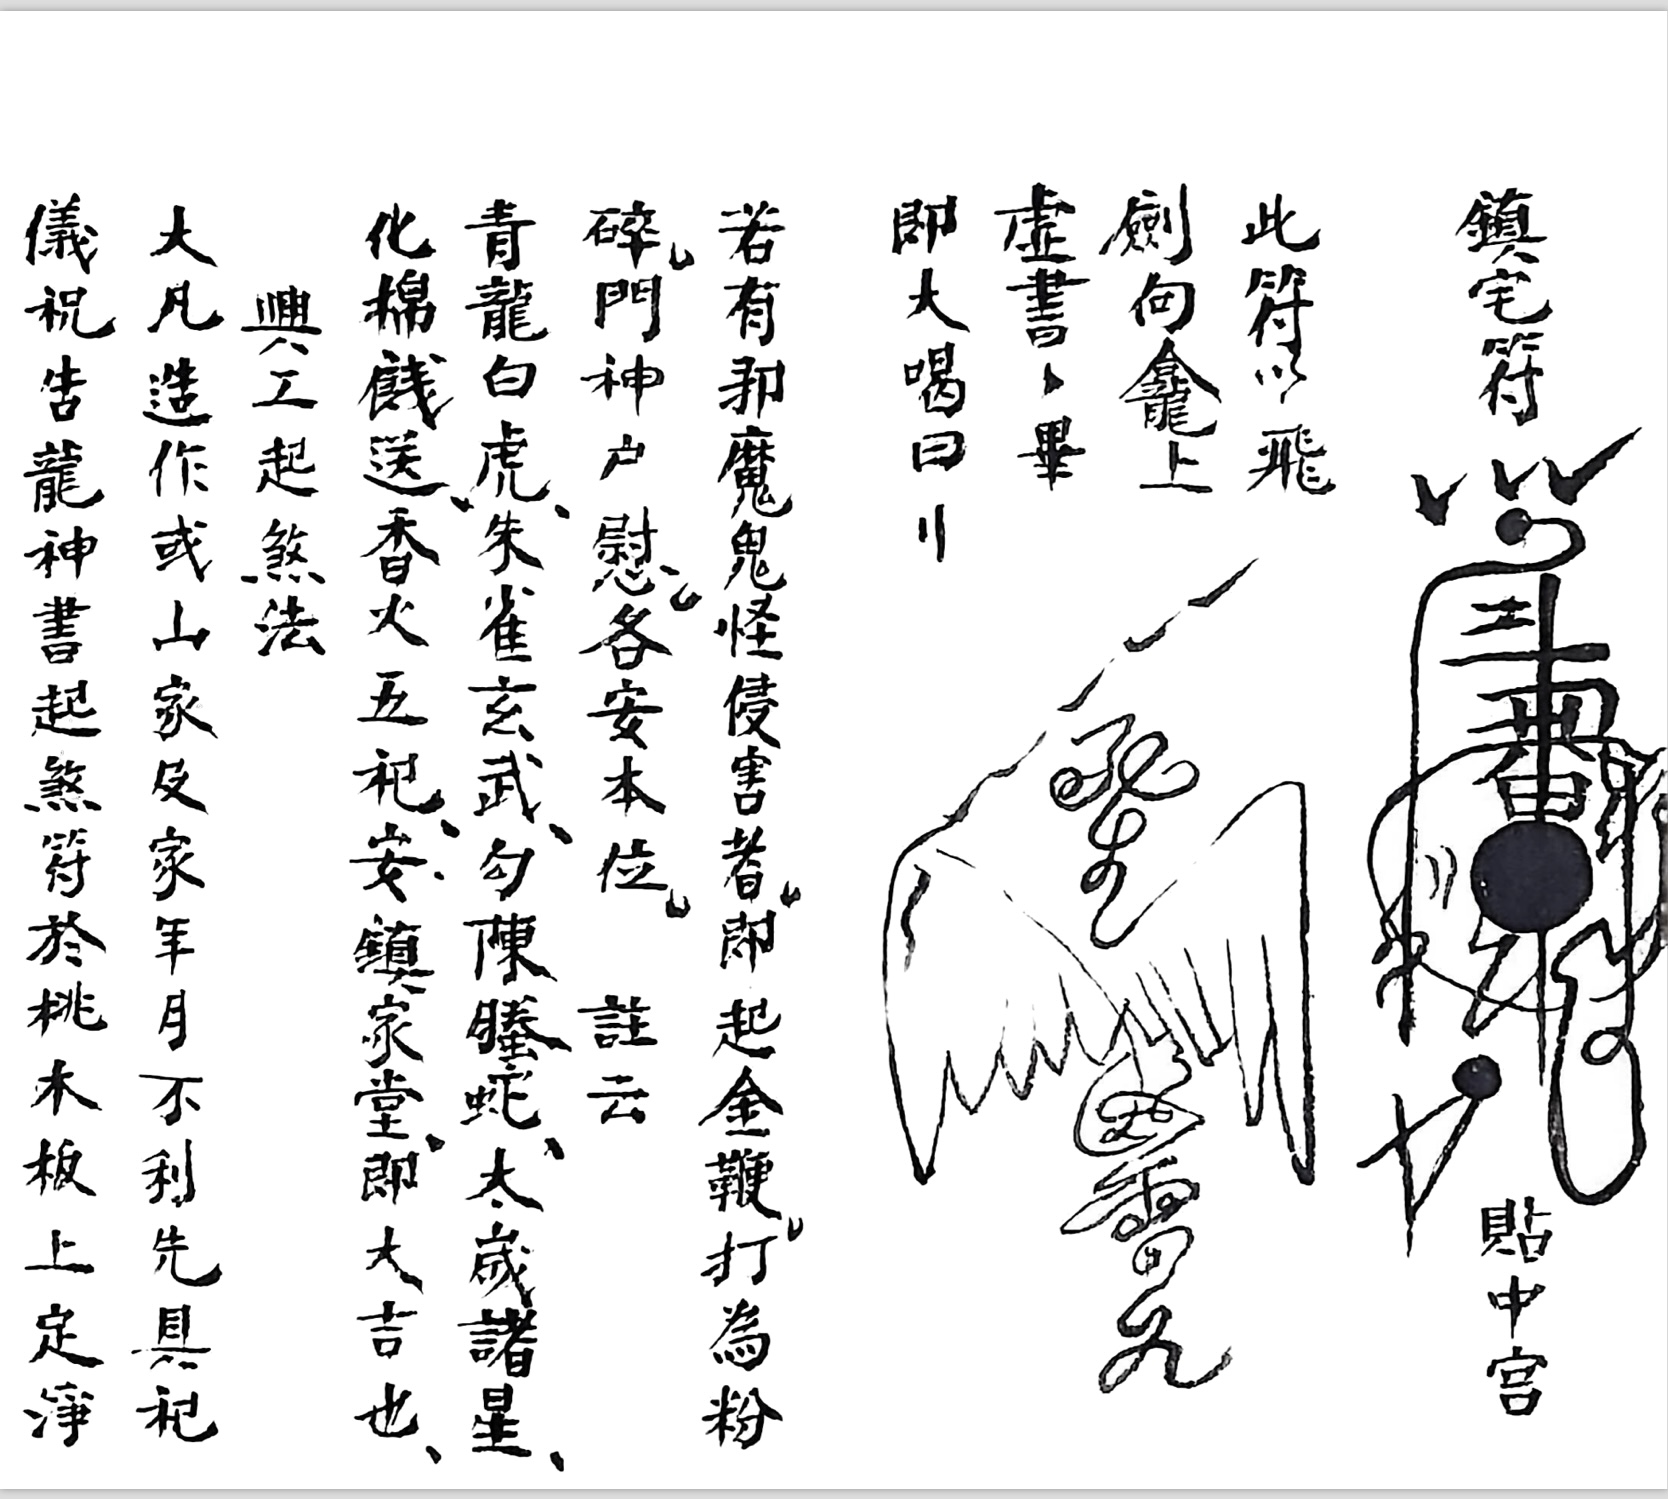 鎮宅符
貼中宮
此符以飛
劍向龕上
虛書丶畢
即大喝曰〢
若有邪魔鬼怪侵害者即起金鞭打為粉
碎門神户慰各安本位 註云
青龍白虎、朱雀玄武、勾陳螣蛇、太歲諸星、
化棉餞送、香火五祀、安鎮家堂、即大吉也、
興工起煞法
大凡造作或山家及家年月不利先具祀
儀祝告龍神書起煞符於桃木板上定淨